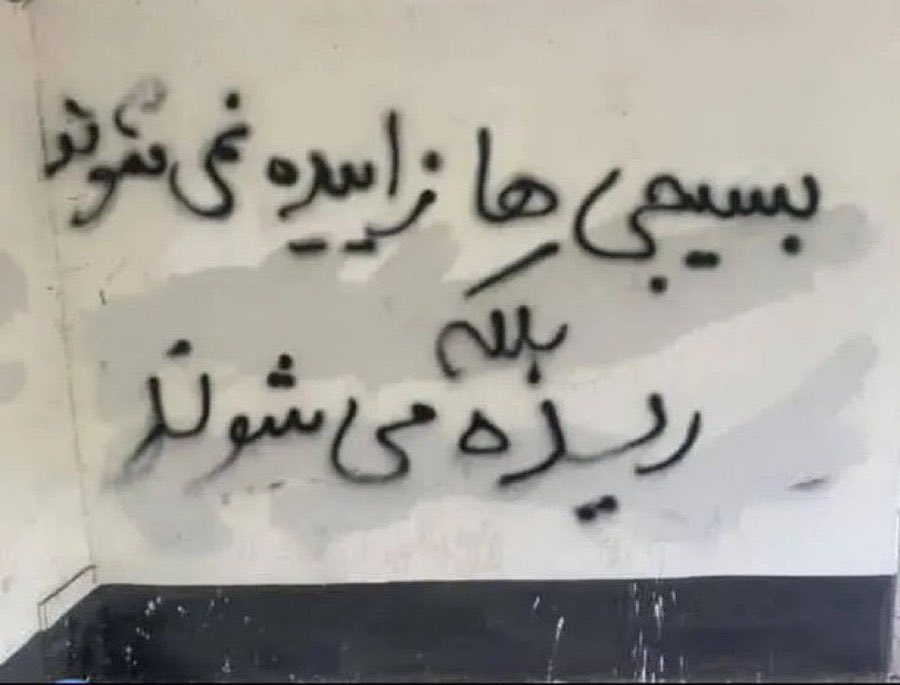 بسیجی ها زاییده نمی شوند
بلکه
ریده می شوند